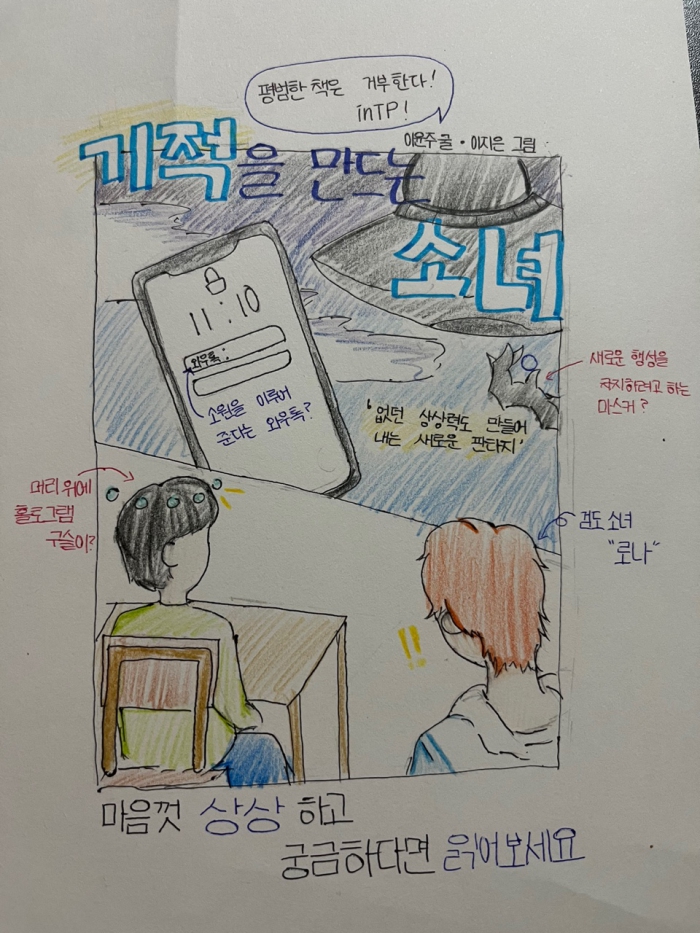 평범한 책은 거부한다!
inTP!
이윤주 글 · 이지은 그림
기적을 만드는
소녀
11:10
와우톡:
소원을 이루어
준다는 와우톡?
새로운 행성을
차지하려고 하는
마스커?
'없던 상상력도 만들어
내는 새로운 판타지'
머리 위에
홀로그램
구슬이?
검도 소녀
"로나"
마음껏 상상하고
궁금하다면 읽어보세요